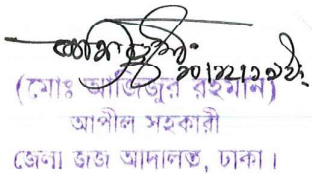 (মোঃ আজিজুর রহমান)
আপীল সহকারী
জেলা জজ আদালত, ঢাকা।